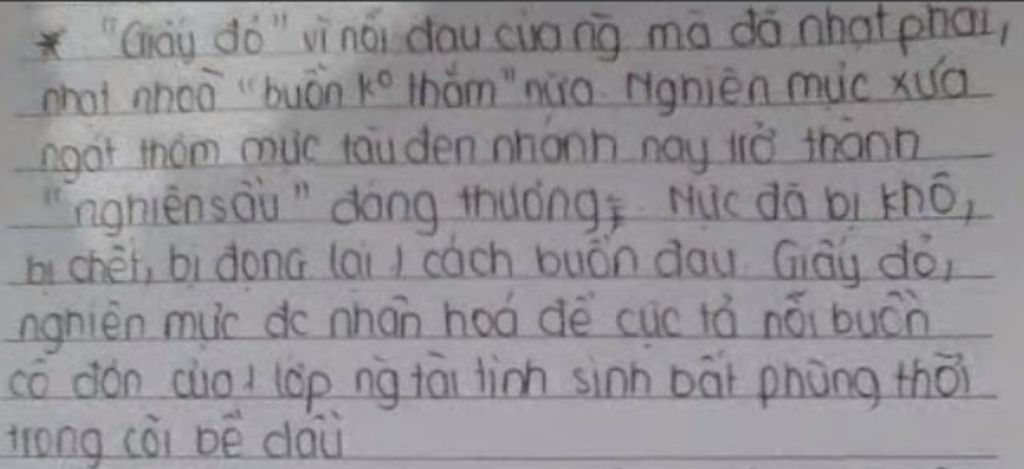 * "Giấy đỏ" vì nỗi đau của ng̃ mà đã nhạt phai,
nhạt nhoà "buồn k° thắm" nữa. Nghiên mực xưa
ngát thơm mực tàu đen nhánh nay trở thành
"nghiên sầu" đáng thương; Mực đã bị khô,
bị chết, bị đọng lại 1 cách buồn đau. Giấy đỏ,
nghiên mực đc nhân hoá để cực tả nỗi buồn
cô đơn của 1 lớp ng tài tình sinh bất phùng thời
trong cõi bể dâu